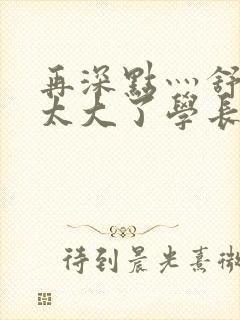 再深點灬舒
太大了學長
待到晨光熹微